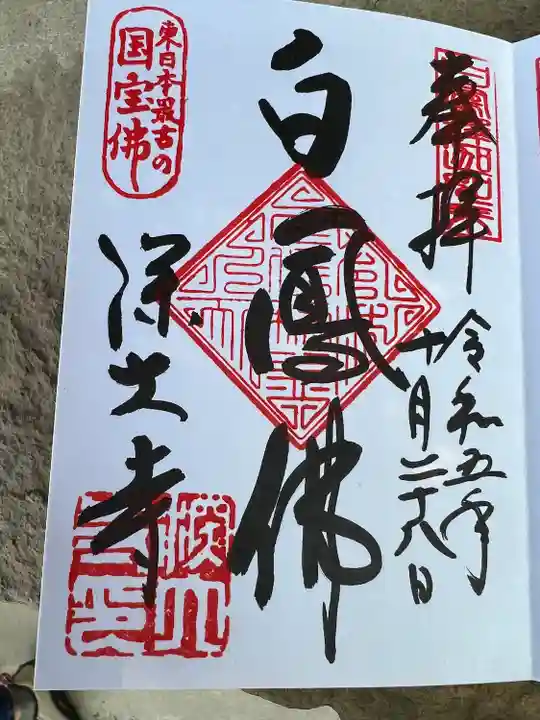 奉拝
令和五年
十月二十八日
白鳳佛
東日本最古の
国宝佛
深大寺